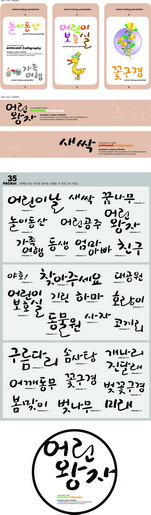 놀이동산
어린이
보호실
가족
여행
evencent Calligraphy
꽃구경
어린
왕자
evencent Calligraphy
새싹
35
PACKet
어린이날 새싹 꿈나무
놀이동산 어린공주 어린
왕자
가족
여행 동생 엄마빠 친구
야호! 찾아주세요 대공원
어린이
보호실 기린 하마 호랑이
동물원 사자 코끼리
구름다리 솜사탕 개나리
진달래
어깨동무 꽃구경 벚꽃구경
봄맞이 벚나무 미래
어린
왕자